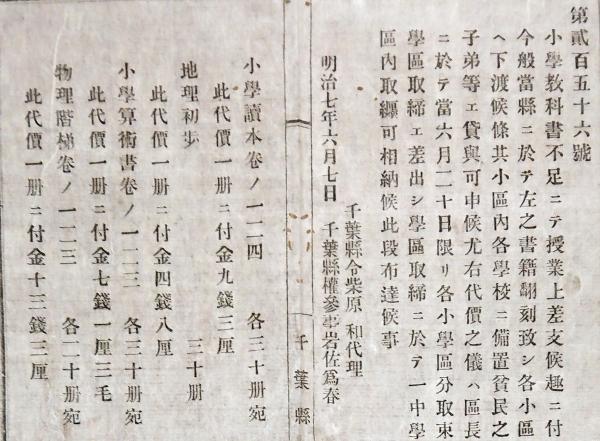 第貳百五十六號
小學敎科書不足ニテ授業上差支候趣ニ付
今般當縣ニ於テ左之書籍翻刻致シ各小區
ヘ下渡候條其小區內各學校ニ備置貧民之
子弟等エ貸與可申候尤右代價之儀ハ區長
ニ於テ當六月二十日限リ各小學區分取束
學區取締エ差出シ學區取締ニ於テ一中學
區內取纏可相納候此段布達候事
千葉縣令柴原 和代理
明治七年六月七日 千葉縣權參事岩佐爲春
千葉縣
小學讀本卷ノ一二四 各三十册宛
此代價一册ニ付金九錢三厘
地理初步 三十册
此代價一册ニ付金四錢八厘
小學算術書卷ノ一二三 各三十册宛
此代價一册ニ付金七錢一厘三毛
物理階梯卷ノ一二三 各二十册宛
此代價一册ニ付金十三錢三厘